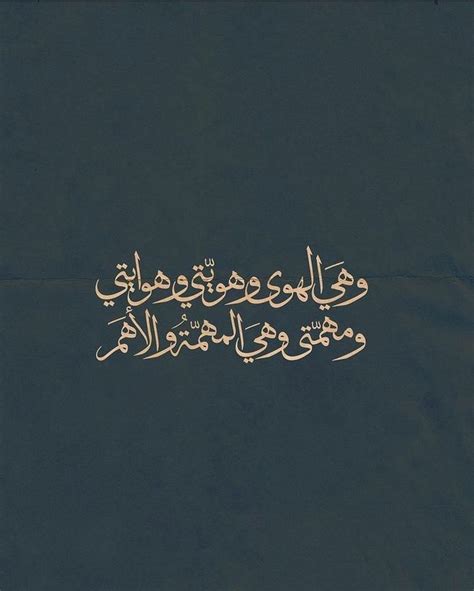 وهيَ الهوى وهويّتي وهوايتي
ومهمّتي وهيَ المهمّةُ والأهمَ